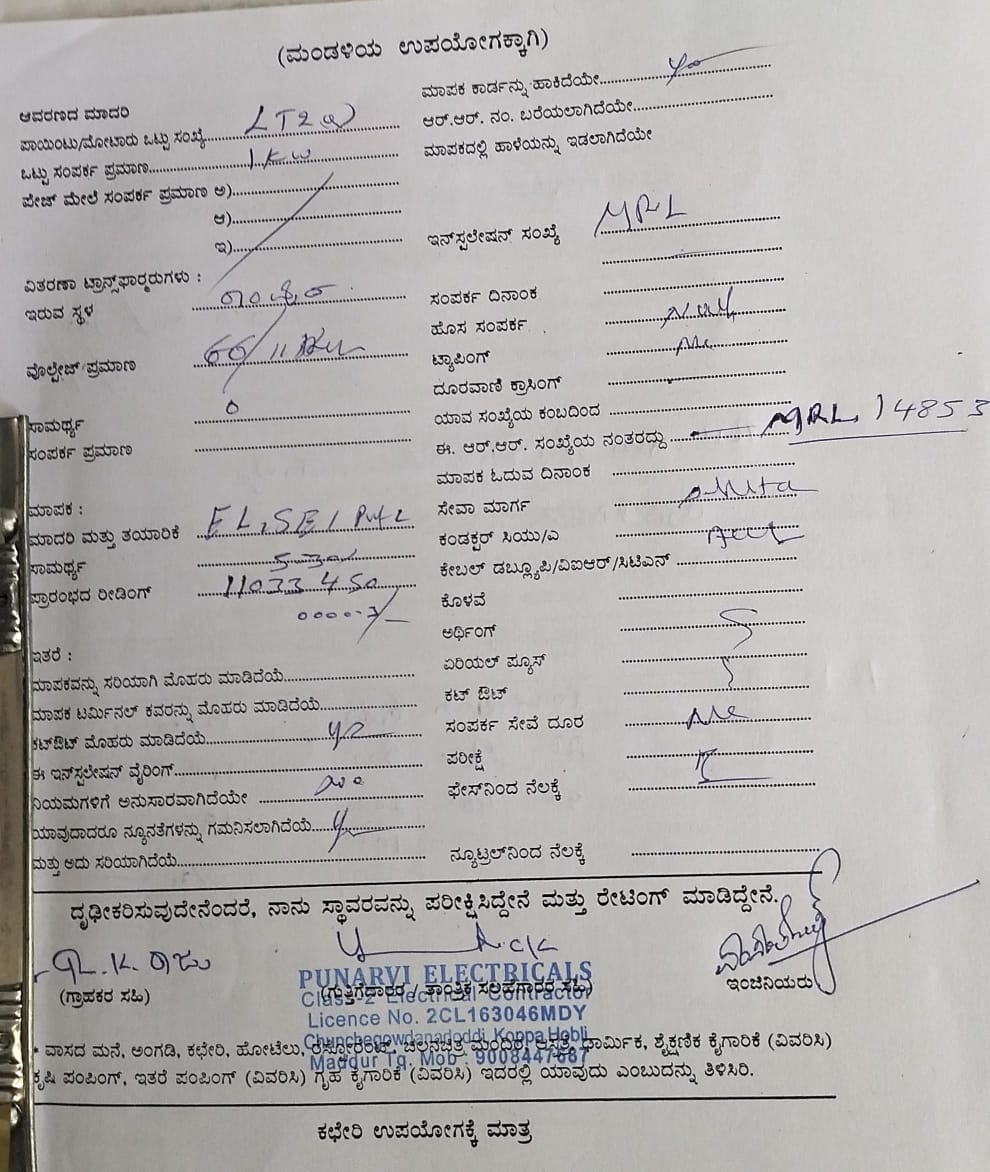 (ಮಂಡಳಿಯ ಉಪಯೋಗಕ್ಕಾಗಿ)
ಆವರಣದ ಮಾದರಿ
ಪಾಯಿಂಟು/ಮೋಟಾರು ಒಟ್ಟು ಸಂಖ್ಯೆ LT2
ಒಟ್ಟು ಸಂಪರ್ಕ ಪ್ರಮಾಣ 1 KW
ಪೇಜ್ ಮೇಲೆ ಸಂಪರ್ಕ ಪ್ರಮಾಣ ಅ)
ಆ)
ಇ)
ವಿತರಣಾ ಟ್ರಾನ್ಸ್‌ಫಾರ್‍ಮರುಗಳು :
ಇರುವ ಸ್ಥಳ
ವೋಲ್ಟೇಜ್ ಪ್ರಮಾಣ 66/11
ಸಾಮರ್ಥ್ಯ 0
ಸಂಪರ್ಕ ಪ್ರಮಾಣ
ಮಾಪಕ :
ಮಾದರಿ ಮತ್ತು ತಯಾರಿಕೆ
ಸಾಮರ್ಥ್ಯ
ಪ್ರಾರಂಭದ ರೀಡಿಂಗ್ 11033450
ಇತರೆ :
ಮಾಪಕವನ್ನು ಸರಿಯಾಗಿ ಮೊಹರು ಮಾಡಿದೆಯೆ
ಮಾಪಕ ಟರ್ಮಿನಲ್ ಕವರನ್ನು ಮೊಹರು ಮಾಡಿದೆಯೆ
ಕಟ್‌ಔಟ್ ಮೊಹರು ಮಾಡಿದೆಯೆ
ಈ ಇನ್‌ಸ್ಟಲೇಷನ್ ವೈರಿಂಗ್
ನಿಯಮಗಳಿಗೆ ಅನುಸಾರವಾಗಿದೆಯೇ
ಯಾವುದಾದರೂ ನ್ಯೂನತೆಗಳನ್ನು ಗಮನಿಸಲಾಗಿದೆಯೆ
ಮತ್ತು ಅದು ಸರಿಯಾಗಿದೆಯೆ
ಮಾಪಕ ಕಾರ್ಡನ್ನು ಹಾಕಿದೆಯೇ
ಆರ್.ಆರ್. ನಂ. ಬರೆಯಲಾಗಿದೆಯೇ
ಮಾಪಕದಲ್ಲಿ ಹಾಳೆಯನ್ನು ಇಡಲಾಗಿದೆಯೇ
ಇನ್‌ಸ್ಪಲೇಷನ್ ಸಂಖ್ಯೆ MRL
ಸಂಪರ್ಕ ದಿನಾಂಕ
ಹೊಸ ಸಂಪರ್ಕ
ಟ್ಯಾಪಿಂಗ್
ದೂರವಾಣಿ ಕ್ರಾಸಿಂಗ್
ಯಾವ ಸಂಖ್ಯೆಯ ಕಂಬದಿಂದ
ಈ. ಆರ್.ಆರ್. ಸಂಖ್ಯೆಯ ನಂತರದ್ದು MRL 14853
ಮಾಪಕ ಓದುವ ದಿನಾಂಕ
ಸೇವಾ ಮಾರ್ಗ
ಕಂಡಕ್ಟರ್ ಸಿಯು/ಎ
ಕೇಬಲ್ ಡಬ್ಲ್ಯೂಪಿ/ವಿಐಆರ್/ಸಿಟಿಎಸ್
ಕೊಳವೆ
ಅರ್ಥಿಂಗ್
ಏರಿಯಲ್ ಪ್ಯೂಸ್
ಕಟ್ ಔಟ್
ಸಂಪರ್ಕ ಸೇವೆ ದೂರ
ಪರೀಕ್ಷೆ
ಫೇಸ್‌ನಿಂದ ನೆಲಕ್ಕೆ
ನ್ಯೂಟ್ರಲ್‌ನಿಂದ ನೆಲಕ್ಕೆ
ದೃಢೀಕರಿಸುವುದೇನೆಂದರೆ, ನಾನು ಸ್ಥಾವರವನ್ನು ಪರೀಕ್ಷಿಸಿದ್ದೇನೆ ಮತ್ತು ರೇಟಿಂಗ್ ಮಾಡಿದ್ದೇನೆ.
(ಗ್ರಾಹಕರ ಸಹಿ)
PUNARVI ELECTRICALS
(ಗುತ್ತಿಗೆದಾರರ / ತಾಂತ್ರಿಕ ಸಲಹೆಗಾರರ ಸಹಿ)
ಇಂಜಿನಿಯರು
Class-2 Electrical Contractor
Licence No. 2CL163046MDY
Chunchegowdanadoddi, Koppa Hobli
Maddur Tq. Mob : 9008447687
* ವಾಸದ ಮನೆ, ಅಂಗಡಿ, ಕಛೇರಿ, ಹೋಟೆಲು, ರೆಸ್ಟೋರೆಂಟ್, ಚಲನಚಿತ್ರ ಮಂದಿರ, ಆಸ್ಪತ್ರೆ, ಧಾರ್ಮಿಕ, ಶೈಕ್ಷಣಿಕ ಕೈಗಾರಿಕೆ (ವಿವರಿಸಿ)
ಕೃಷಿ ಪಂಪಿಂಗ್, ಇತರೆ ಪಂಪಿಂಗ್ (ವಿವರಿಸಿ) ಗೃಹ ಕೈಗಾರಿಕೆ (ವಿವರಿಸಿ) ಇದರಲ್ಲಿ ಯಾವುದು ಎಂಬುದನ್ನು ತಿಳಿಸಿರಿ.
ಕಛೇರಿ ಉಪಯೋಗಕ್ಕೆ ಮಾತ್ರ